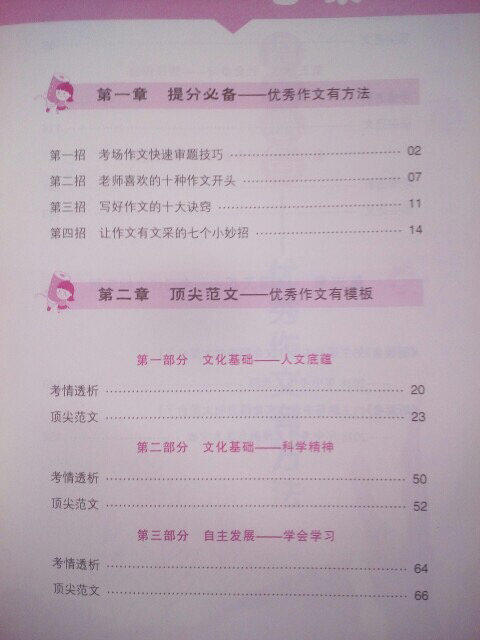 第一章 提分必备——优秀作文有方法
第一招 考场作文快速审题技巧 02
第二招 老师喜欢的十种作文开头 07
第三招 写好作文的十大诀窍 11
第四招 让作文有文采的七个小妙招 14
第二章 顶尖范文——优秀作文有模板
第一部分 文化基础——人文底蕴
考情透析 20
顶尖范文 23
第二部分 文化基础——科学精神
考情透析 50
顶尖范文 52
第三部分 自主发展——学会学习
考情透析 64
顶尖范文 66